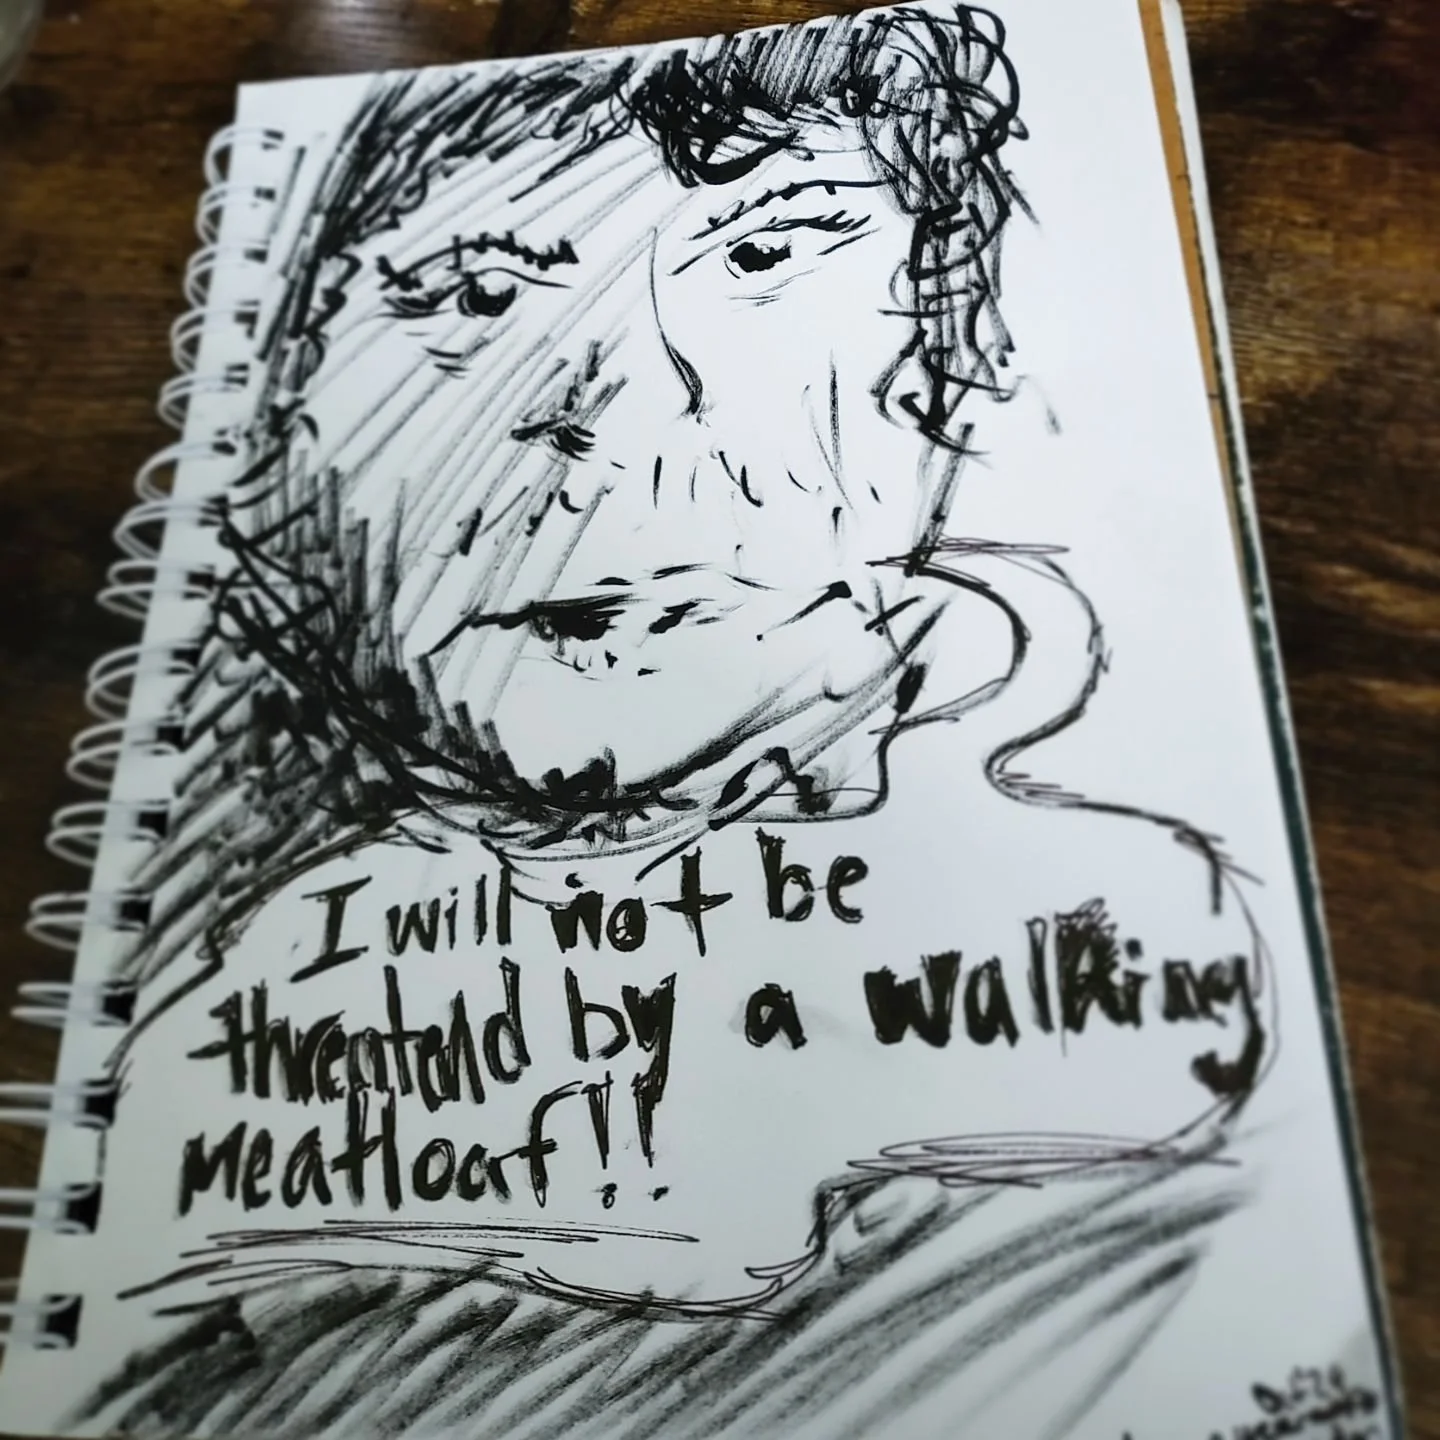 I will not be
threatend by a walking
meatloaf!!